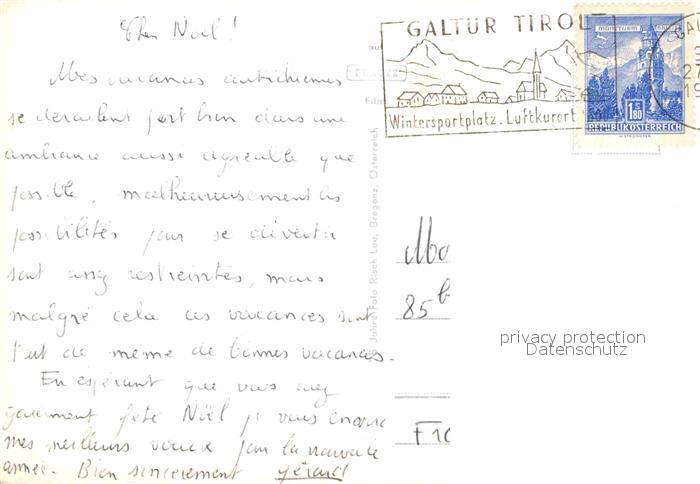 Cher Noël !
Mes vacances autrichiennes
se déroulent fort bien dans une
ambiance aussi agréable que
possible, malheureusement les
possibilités pour se divertir
sont assez restreintes, mais
malgré cela ces vacances sont
tout de même de bonnes vacances.
En espérant que vous avez
gaiement fêté Noël je vous envoie
mes meilleurs voeux pour la nouvelle
année. Bien sincèrement Gérard
GALTÜR TIROL
Wintersportplatz. Luftkurort
MÜNZTURM
1.80
REPUBLIK ÖSTERREICH
Foto Risch Lau, Bregenz, Österreich
Film
85 b
privacy protection
Datenschutz